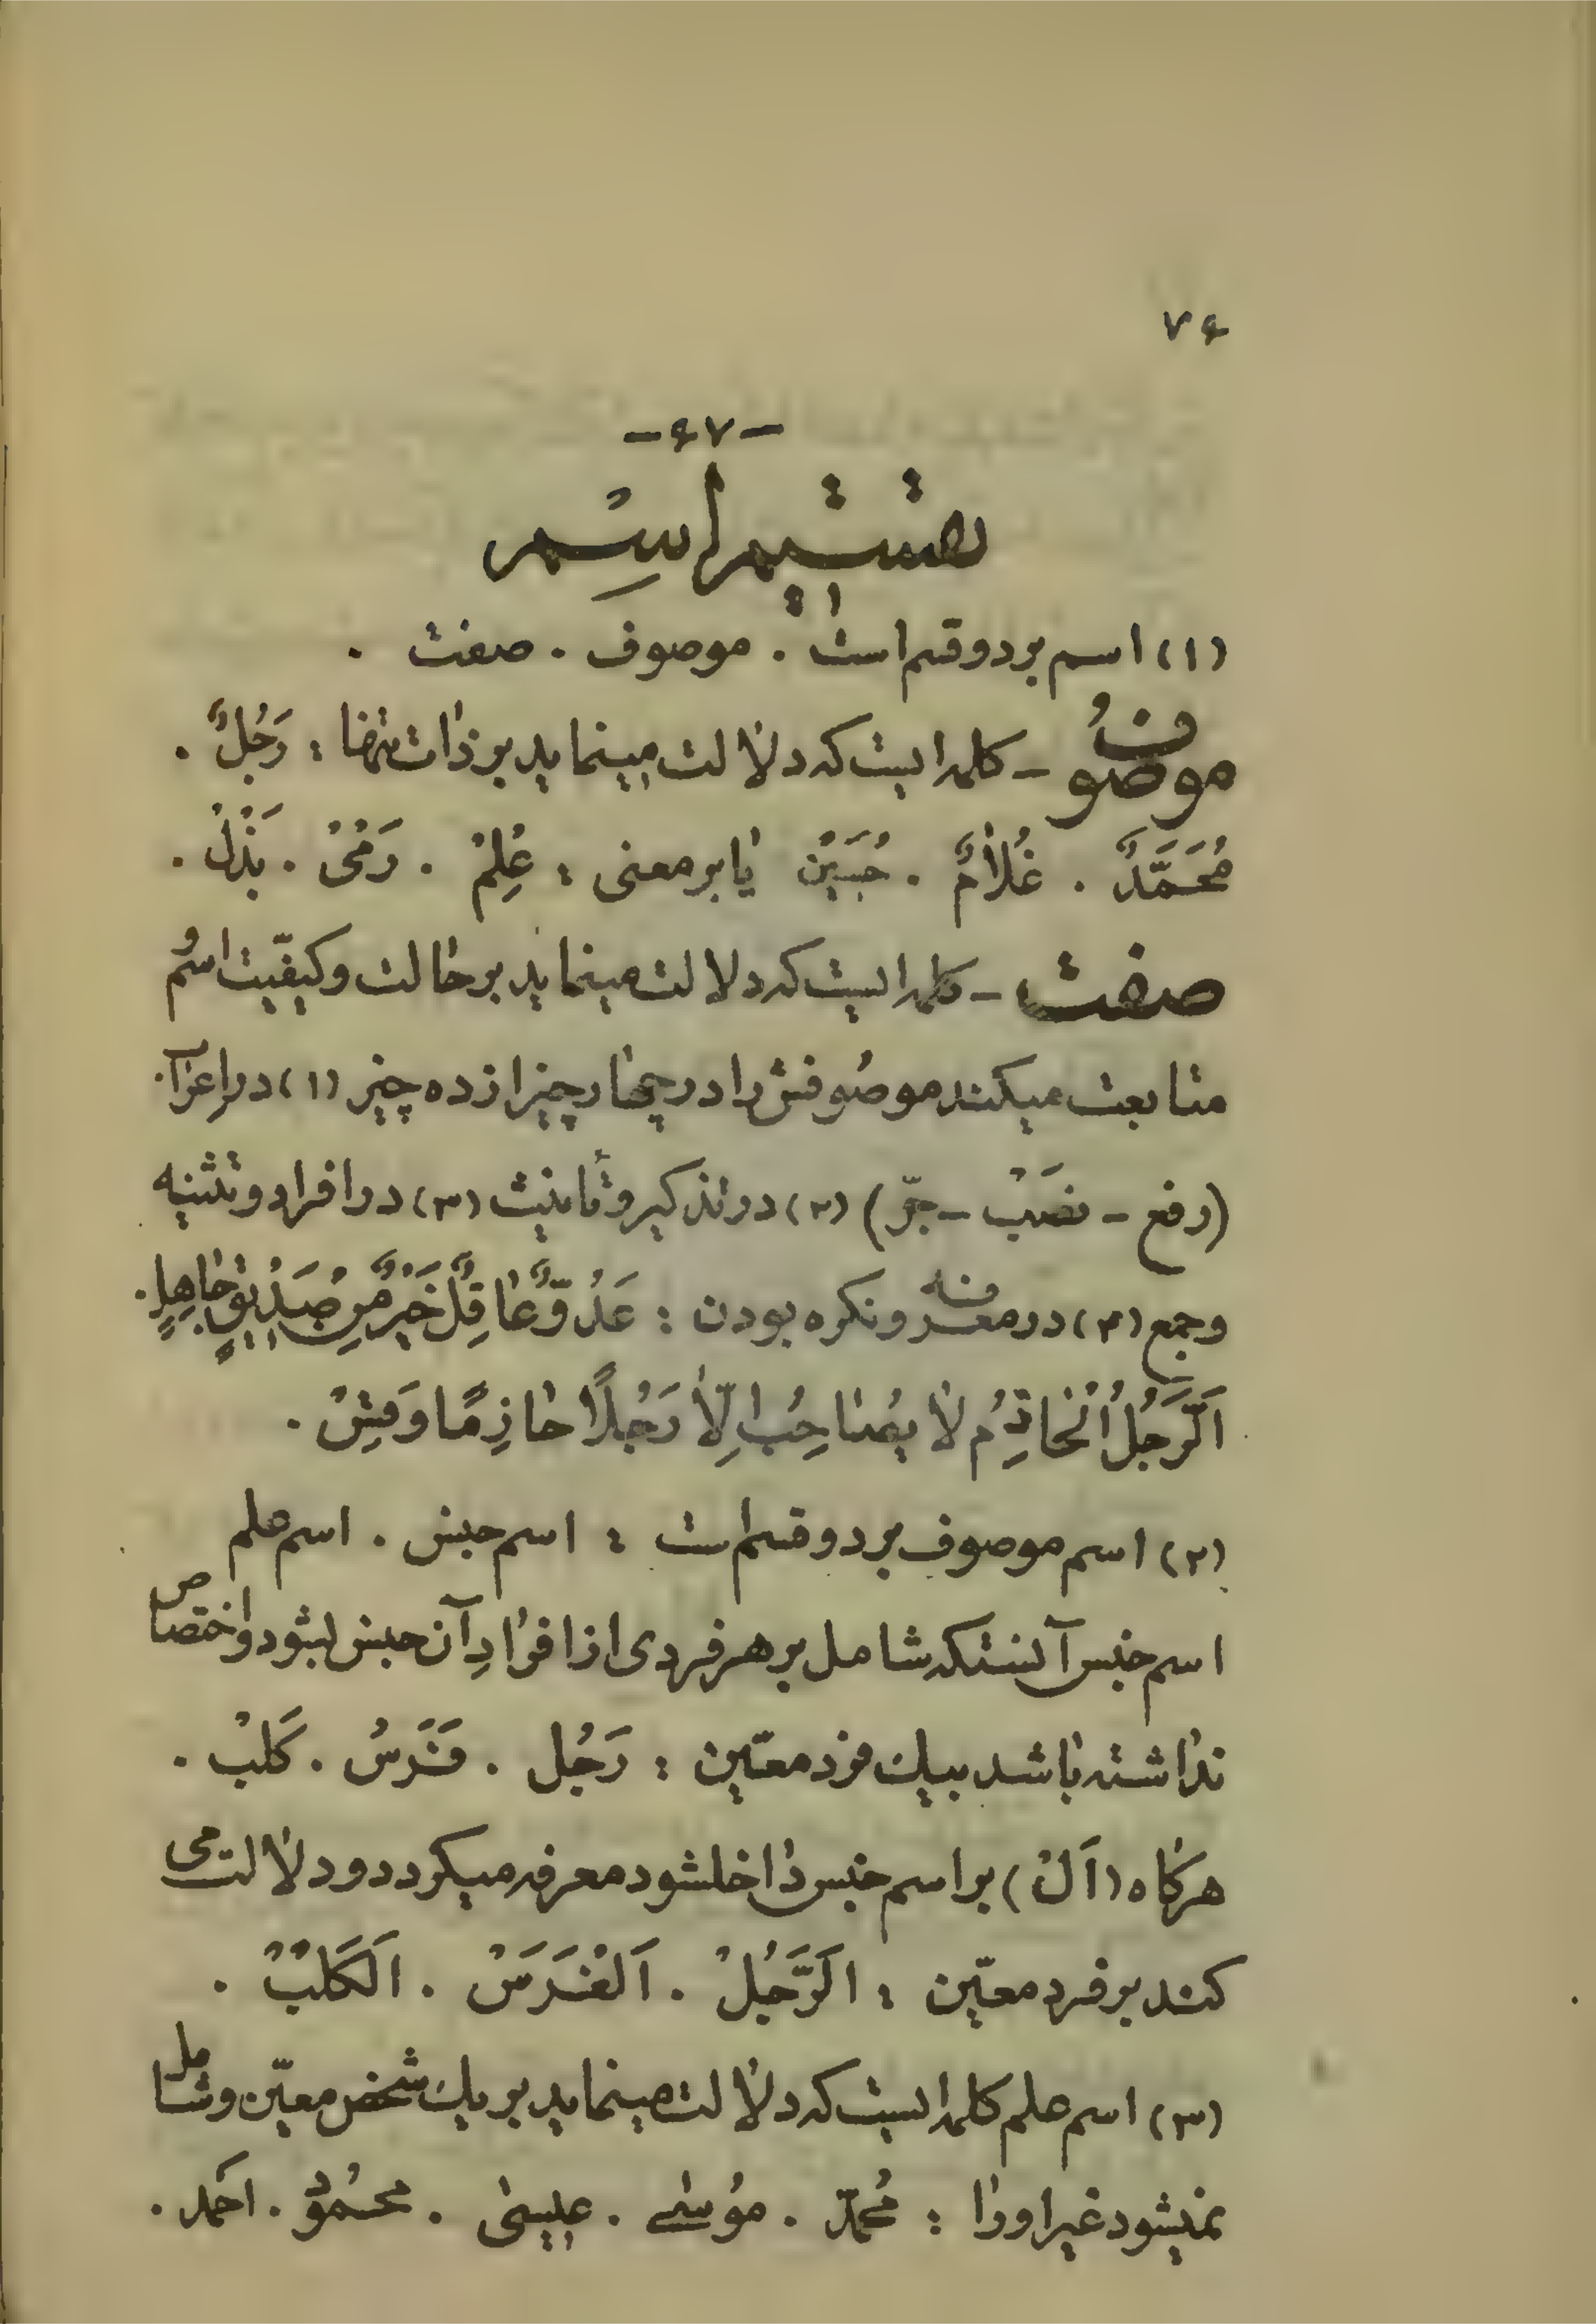 ۷۴
-۴۷-
تقسیم اسم
(۱) اسم بر دو قسم است . موصوف . صفت .
موصوف - کلمه ایست که دلالت مینماید بر ذات تنها : رَجُلٌ .
مُحَمَّدٌ . غُلامٌ . حُسَیْن یا بر معنی : عِلِمْ . رَمْیْ . بَذْلْ .
صفت - کلمه ایست که دلالت مینماید بر حالت و کیفیّت اسم و
متابعت میکند موصوفش را در چهار چیز از ده چیز (۱) در اِعراب
(رفع - نصَبْ - جرّ) (۲) در تذکیر و تأنیث (۳) در افراد و تثنیه
و جمع (۴) در معرفه و نکره بودن : عَدُوٌّ عاقِلٌ خَیْرٌ مِنْ صَدیقٍ جاهِلٍ .
اَلرَّجُلُ اْلحازِمُ لا یُصاحِبُ اِلّا رَجُلًا حازِمًا وَ
(۲) اسم موصوف بر دو قسم است : اسم جنس . اسم علم
اسم جنس آنستکه شامل بر هر فردی از افرادِ آن جنس بشود و اختصاص
نداشته باشد بیک فرد معیّن : رَجُل . فَرَسْ . کَلْبْ .
هرگاه (اَلْ) بر اسم جنس داخلشود معرفه میگردد و دلالت می
کند بر فرد معیّن : اَلرَّجُلْ . اَلْفَرَسْ . اَلکَلْبْ .
(۳) اسم علم کلمه ایست که دلالت مینماید بر یک شخص معیّن و شامل
نمیشود غیر او را : مُحمّد . مُوسٰی . عیسٰی . محمُود . احمد .